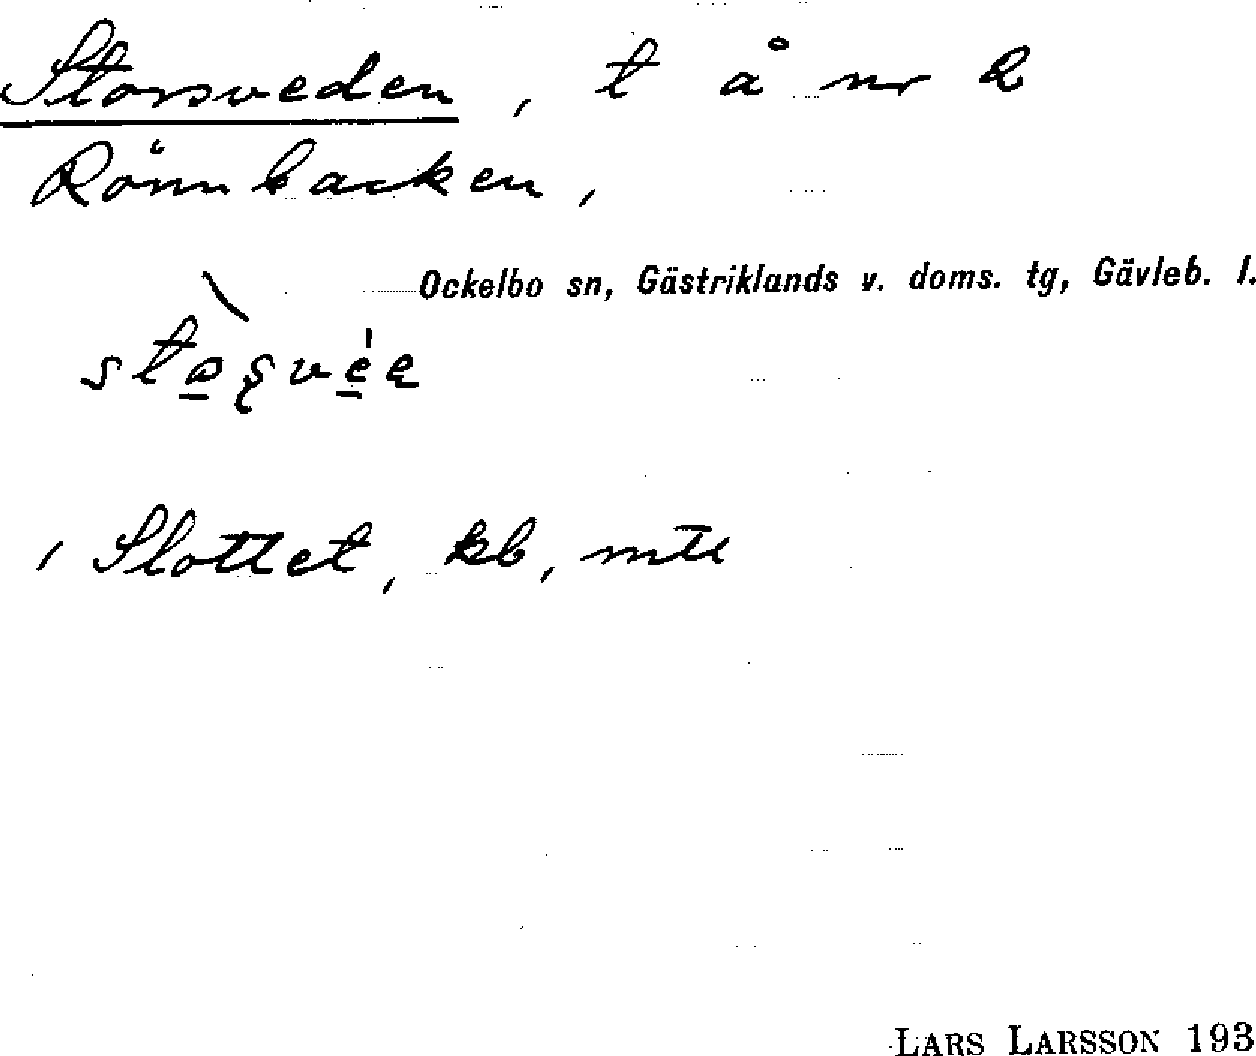 Storsveden, t å nr 2
Rönnbacken,
Ockelbo sn, Gästriklands v. doms. tg, Gävleb. l.
, Slottet, kb, mtl
LARS LARSSON 193